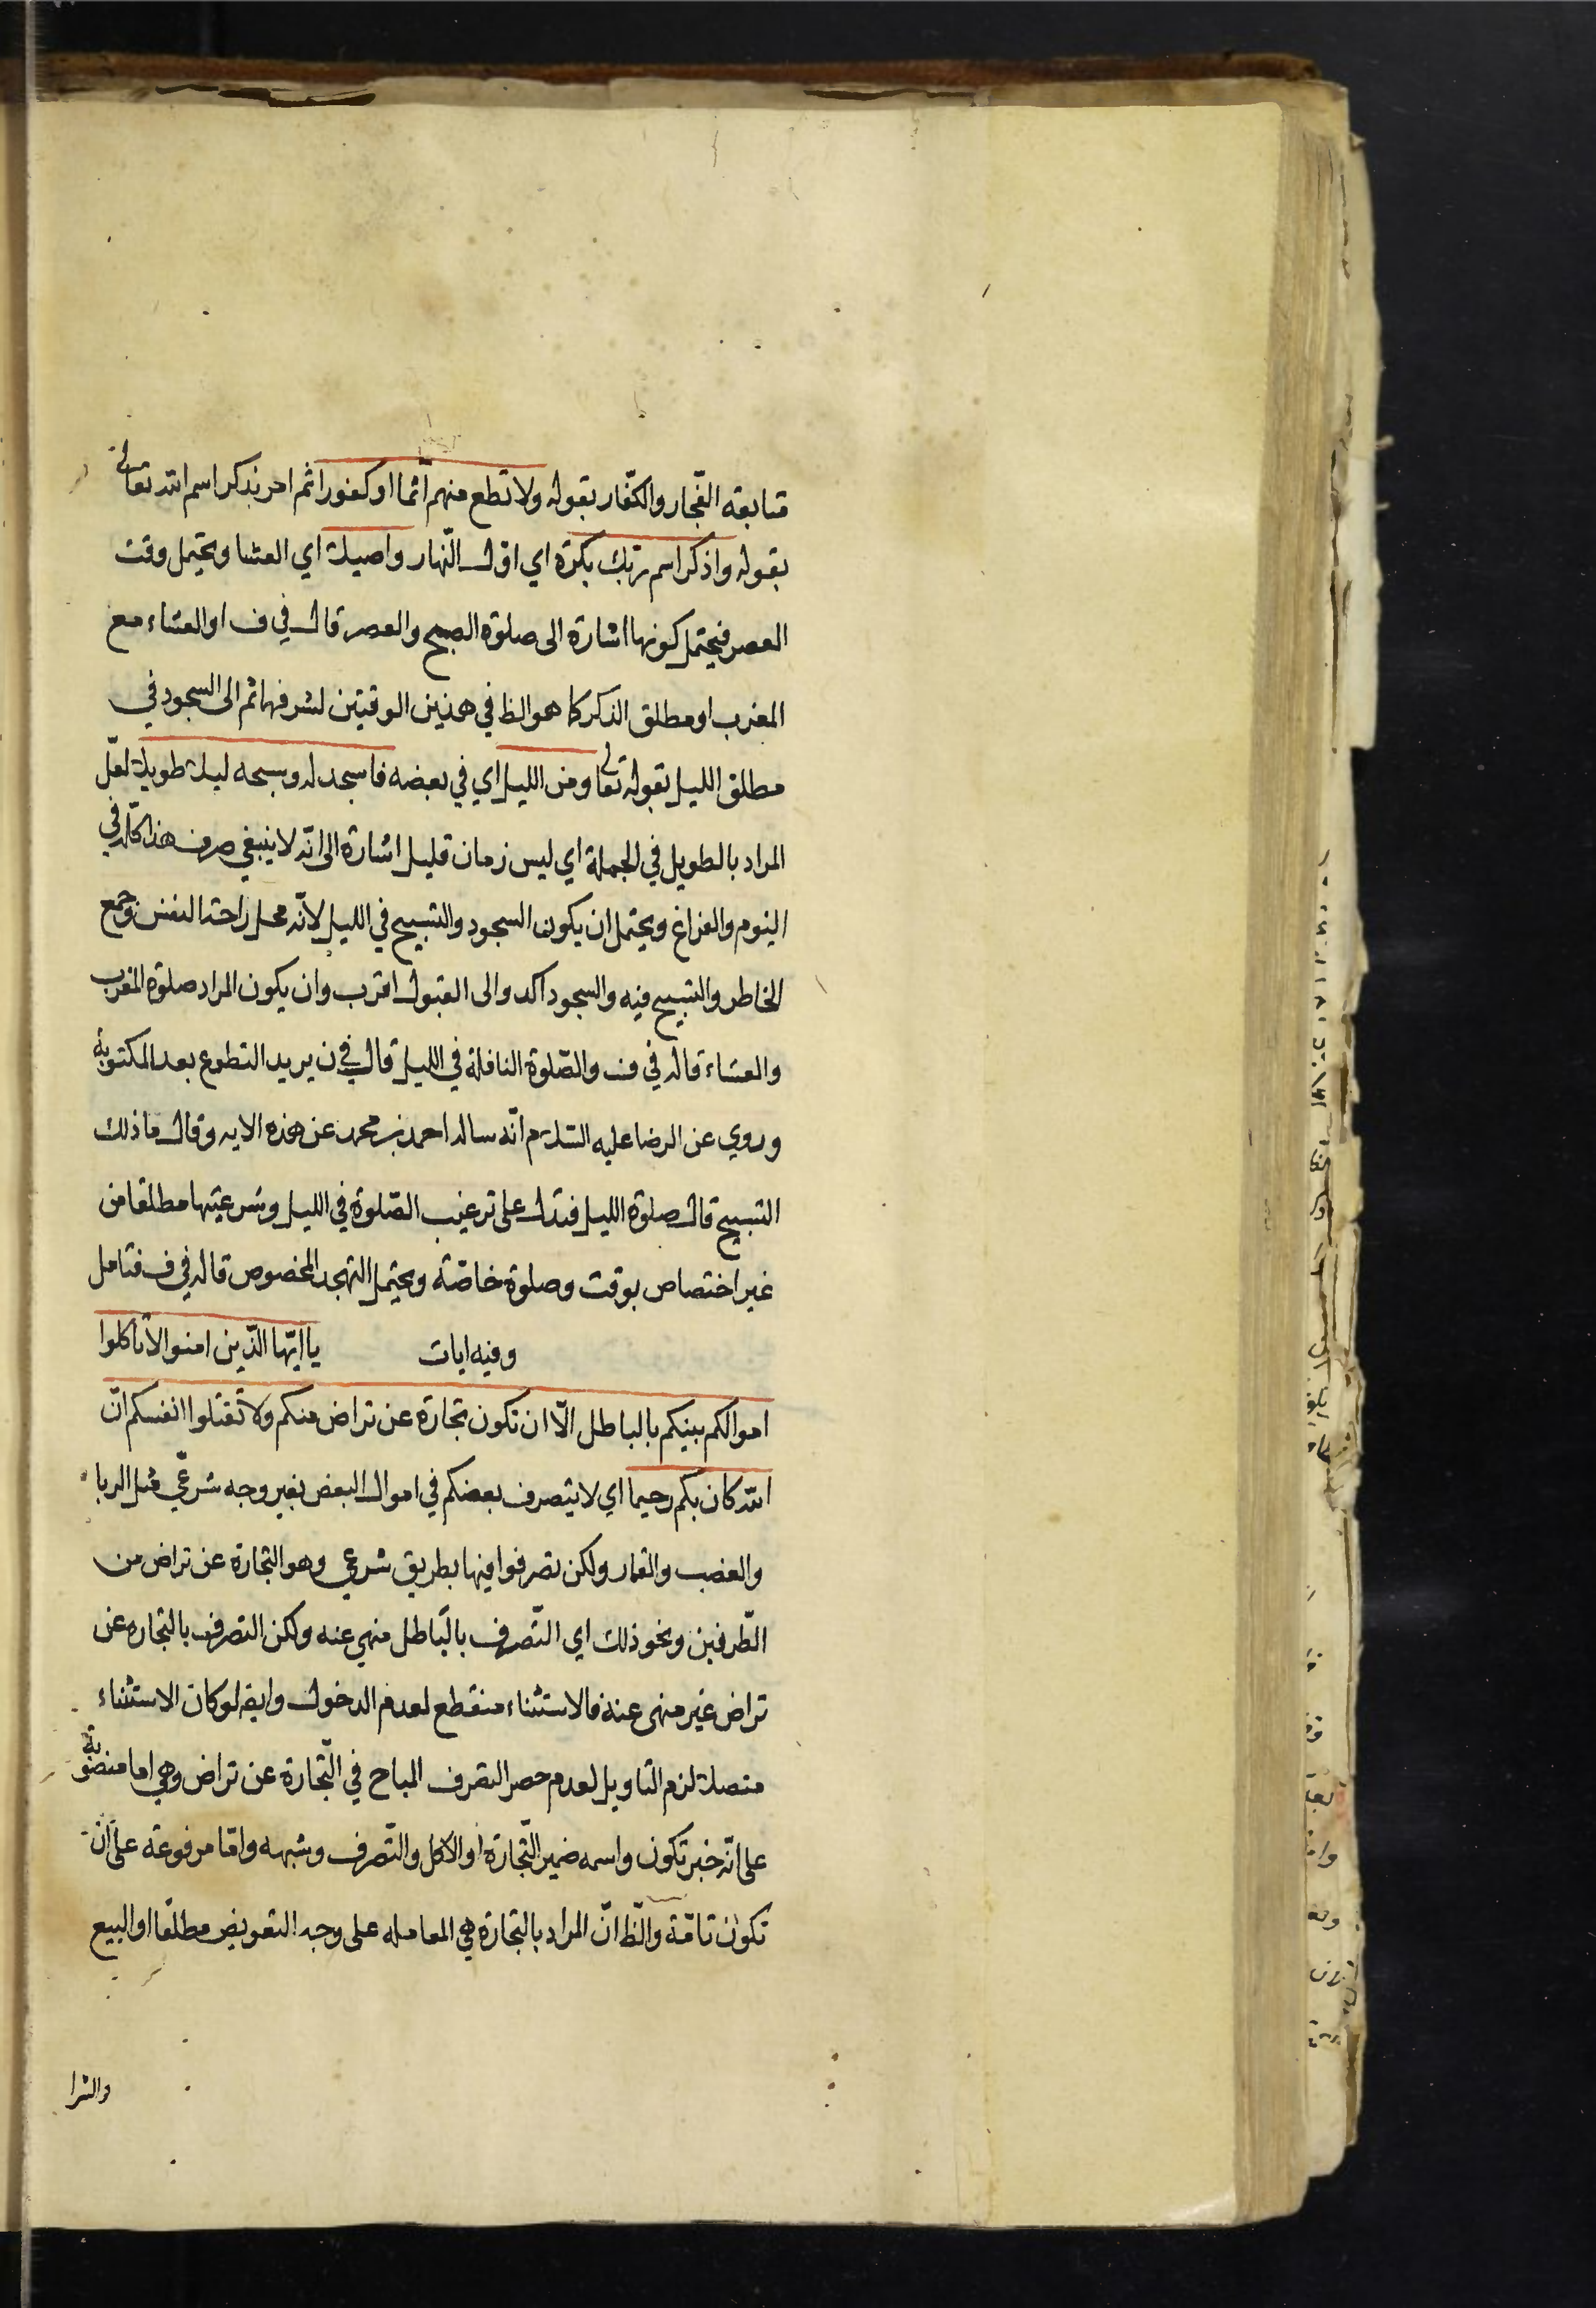 متابعة الفجّار والكفّار بقوله ولا تطع منهم آثما او كفورا ثم امر بذكر اسم الله تعالى
بقوله واذكر اسم ربك بكرة اي اوّل النّهار واصيلا اي العشا ويحتمل وقت
العصر فيحتمل كونها اشارة الى صلوة الصبح والعصر قال في ف او العشاء مع
المغرب او مطلق الذكر كما هو الظ في هذين الوقتين لشرفهما ثم الى السجود في
مطلق الليل بقوله تعالى ومن الليل اي في بعضه فاسجد له وسبحه ليلا طويلا لعلّ
المراد بالطويل في الجملة اي ليس زمان قليل اشارة الى انّه لا ينبغي صرف هذا كلّه في
النوم والفراغ ويحتمل ان يكون السجود والتسبيح في الليل لانّه محل راحة النفس وجمع
الخاطر والتسبيح فيه والسجود اكد والى القبول اقرب وان يكون المراد صلوة المغرب
والعشاء قاله في ف والصّلوة النافلة في الليل قال في ن يريد التطوع بعد المكتوبة
وروي عن الرضا عليه السّلام انّه ساله احمد بن محمد عن هذه الايه وقال ما ذلك
التسبيح قال صلوة الليل فتدل على ترغيب الصّلوة في الليل وشرعيتها مطلقا من
غير اختصاص بوقت وصلوة خاصّة ويحتمل التهجد المخصوص قاله في ف فتامل
وفيه ايات يا ايّها الذّين امنوا لا تاكلوا
اموالكم بينكم بالباطل الّا ان تكون تجارة عن تراض منكم ولا تقتلوا انفسكم انّ
الله كان بكم رحيما اي لا يتصرف بعضكم في اموال البعض بغير وجه شرعّي مثل الربا
والغصب والقمار ولكن تصرفوا فيها بطريق شرعي وهو التجارة عن تراض من
الطّرفين ونحو ذلك اي التّصرف بالبّاطل منهي عنه ولكن التصرف بالتجاره عن
تراض غير منهى عنه فالاستثناء منقطع لعدم الدخول وايضه لو كان الاستثناء
متصلا لزم التاويل لعدم حصر التصرف المباح في التّجارة عن تراض وهي اما منصوبة
على انّه خبر تكون واسمه ضمير التّجارة او الاكل والتّصرف وشبهه وامّا مرفوعة على انّ
تكون تامّة والظّ انّ المراد بالتجارة هي المعامله على وجه التعويض مطلقا او البيع
والشرا